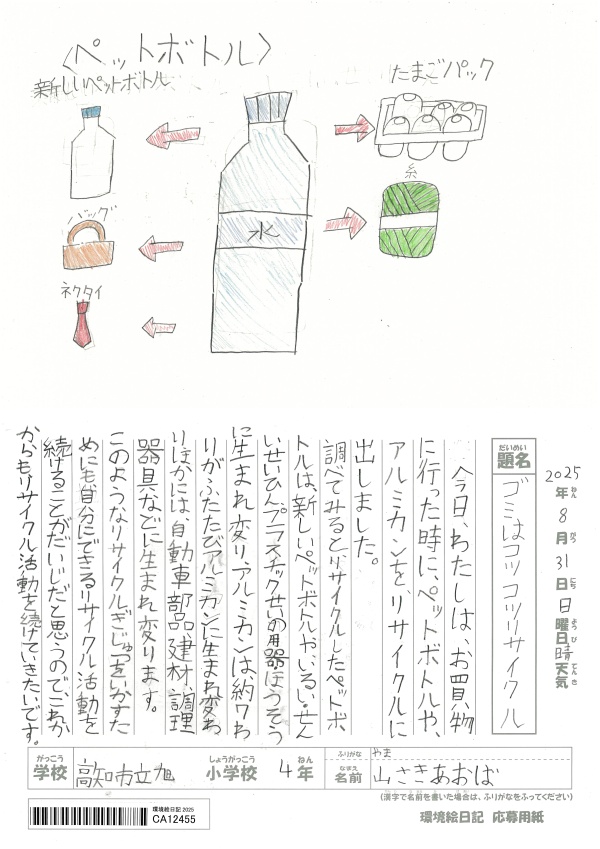 〈ペットボトル〉
新しいペットボトル
たまごパック
バッグ
糸
水
ネクタイ
2025年8月31日日曜日晴天気
ねん
がつ
にち
ようび
てんき
だいめい
題名
ゴミはコツコツリサイクル
今日、わたしは、お買い物
に行った時に、ペットボトルや、
アルミカンを、リサイクルに
出しました。
調べてみると、リサイクルしたペットボ
トルは、新しいペットボトルや、いるい・せん
いせいひん、プラスチックせいの用器・ほうそう
に生まれ変り、アルミカンは約7わ
りがふたたびアルミカンに生まれ変わ
りほかには、自動車部品、建材、調理
器具などに生まれ変ります。
このようなリサイクルぎじゅつをいかすた
めにも自分にできるリサイクル活動を
続けることがだいじだと思うので、これか
からもリサイクル活動を続けていきたいです。
がっこう
学校
高知市立旭
しょうがっこう
小学校
4年
ねん
ふりがな
やま
なまえ
名前
山さきあおば
(漢字で名前を書いた場合は、ふりがなをふってください)
環境絵日記 2025
CA12455
環境絵日記 応募用紙